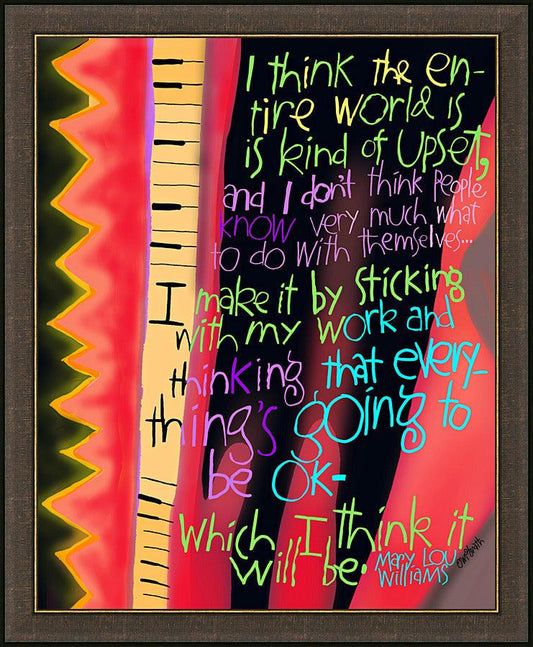 I think the en-
tire world is
is kind of upset,
and I don't think people
know very much what
to do with themselves...
I make it by sticking
with my work and
thinking that every-
thing's going to
be OK-
Which I think it
will be. Mary Lou
Williams